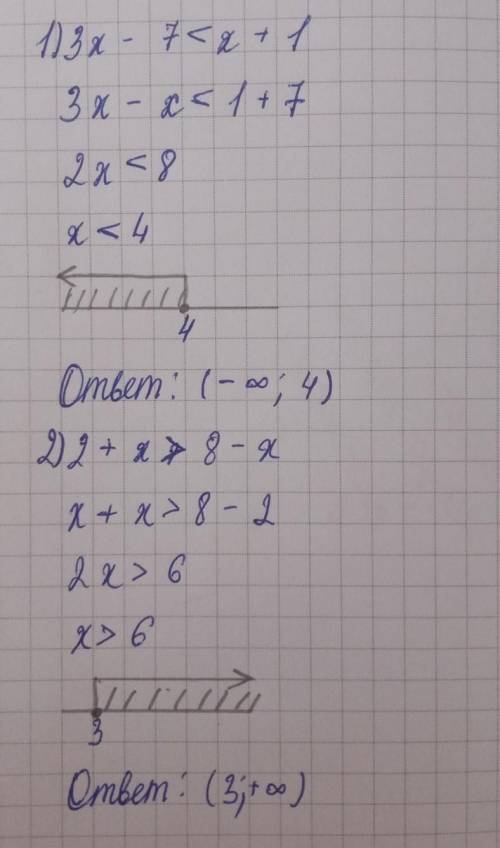 1) 3x - 7 < x + 1
3x - x < 1 + 7
2x < 8
x < 4
4
Ответ: (-∞; 4)
2) 2 + x > 8 - x
x + x > 8 - 2
2x > 6
x > 6
3
Ответ: (3; +∞)